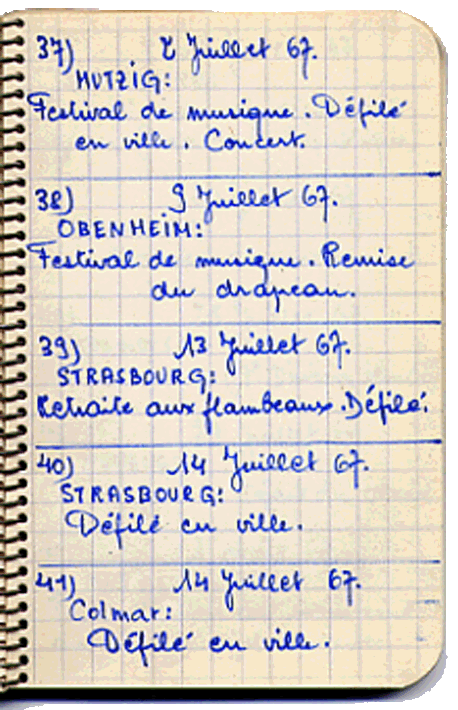 37) 2 Juillet 67.
MUTZiG:
Festival de musique. Défilé
en ville. Concert.
38) 9 Juillet 67.
OBENHEiM:
Festival de musique. Remise
du drapeau.
39) 13 Juillet 67.
STRASBOURG:
Retraite aux flambeaux. Défilé.
40) 14 Juillet 67.
STRASBOURG:
Défilé en ville.
41) 14 Juillet 67.
Colmar:
Défilé en ville.